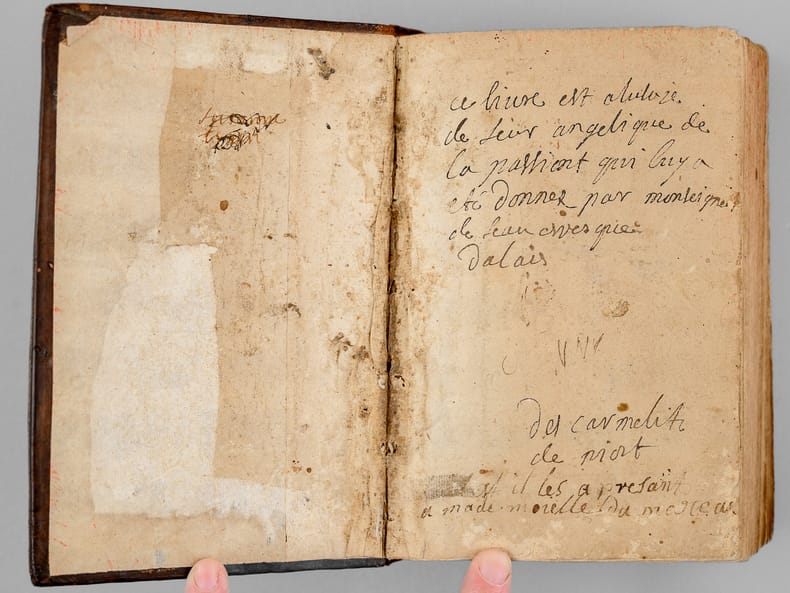 ce liure est aluluije
de seur angelique de
la passiont qui luy a
eté donner par monseigneu
de seau evesque
Dalais
des carmelite
de niort
est il les a presant
a made moielle du